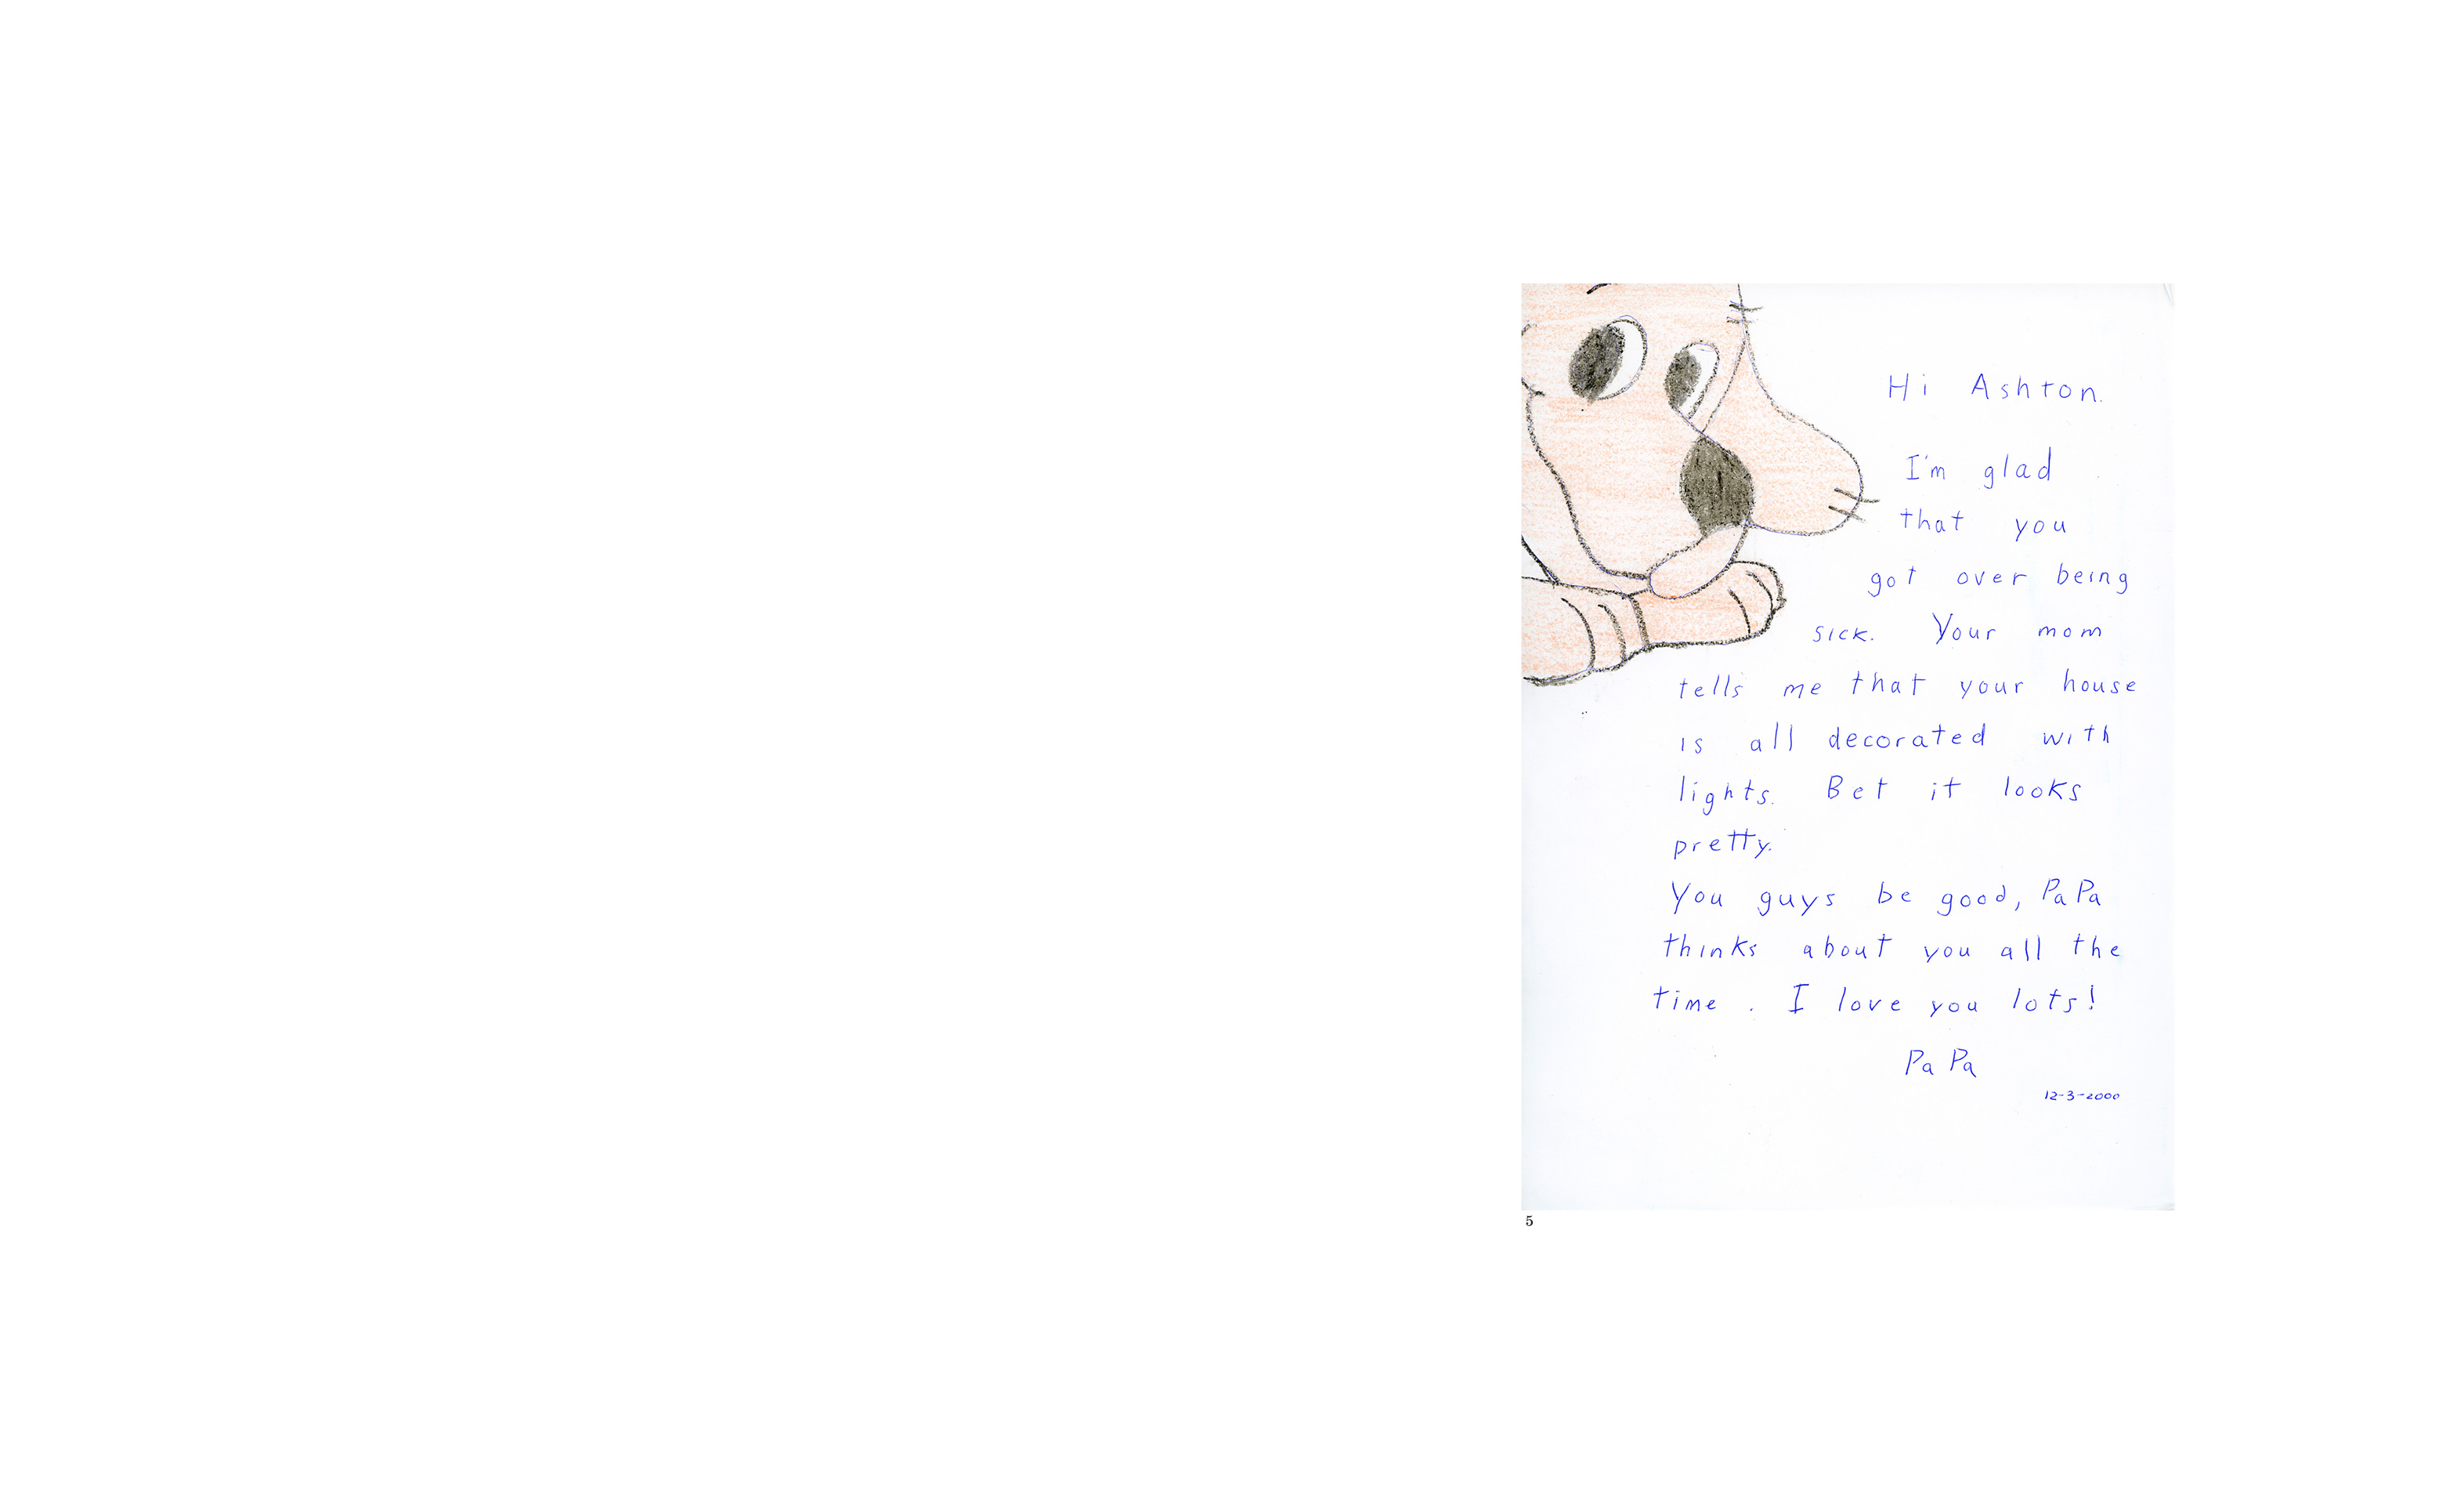 Hi Ashton.
I'm glad
that you
got over being
sick. Your mom
tells me that your house
is all decorated with
lights. Bet it looks
pretty.
You guys be good, PaPa
thinks about you all the
time. I love you lots!
PaPa
12-3-2000
5